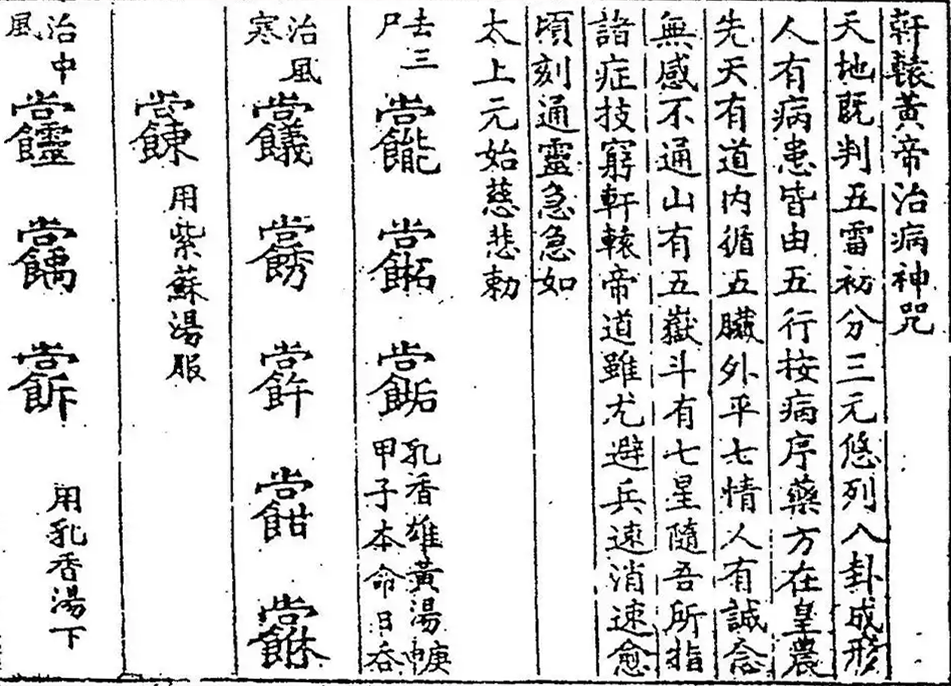 軒轅黃帝治病神咒
天地既判五雷初分三元悠列八卦成形
人有病患皆由五行按病序藥方在皇農
先天有道内循五臟外平七情人有誠念
無感不通山有五嶽斗有七星隨吾所指
諸症技窮軒轅帝道雖尤避兵速消速愈
頃刻通靈急急如
太上元始慈悲勅
去三尸
乳香雄黃湯
甲子本命日吞
治風寒
用紫蘇湯服
治中風
用乳香湯下